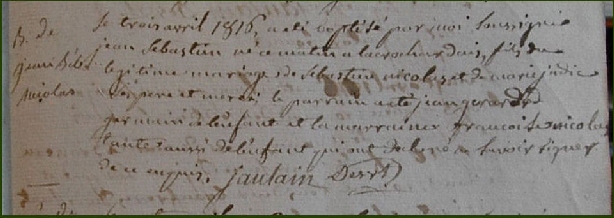 B. de
jean Seb.
nicolas
Le trois avril 1816, a été baptisé par moi soussigné
jean Sébastien né ce matin a la rochardais, fils du
légitime mariage de Sébastien nicolas et de marie judic
ses pere et mere; le parrain a été jean gerard
germain de l'enfant et la marraine francoise nicolas
tante aussi de l'enfant qui ont déclaré ne savoir signer
de ce interpellés. jaulain Desst